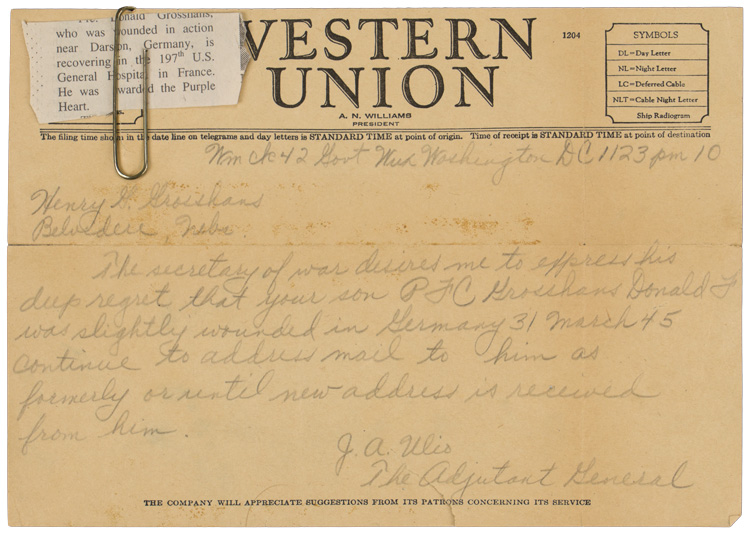 Pfc. Donald Grosshans,
who was wounded in action
near Darson, Germany, is
recovering in the 197th U.S.
General Hospital in France.
He was awarded the Purple
Heart.
WESTERN
UNION
1204
A. N. WILLIAMS
PRESIDENT
SYMBOLS
DL=Day Letter
NL=Night Letter
LC=Deferred Cable
NLT=Cable Night Letter
Ship Radiogram
The filing time shown in the date line on telegrams and day letters is STANDARD TIME at point of origin. Time of receipt is STANDARD TIME at point of destination
Wm ck 42 Govt Wux Washington DC 1123 pm 10
Henry H. Grosshans
Belvidere Nebr.
The secretary of war desires me to express his
deep regret that your son PFC Grosshans Donald F
was slightly wounded in Germany 31 March 45
continue to address mail to him as
formerly or until new address is received
from him.
J. A. Ulio
The Adjutant General
THE COMPANY WILL APPRECIATE SUGGESTIONS FROM ITS PATRONS CONCERNING ITS SERVICE